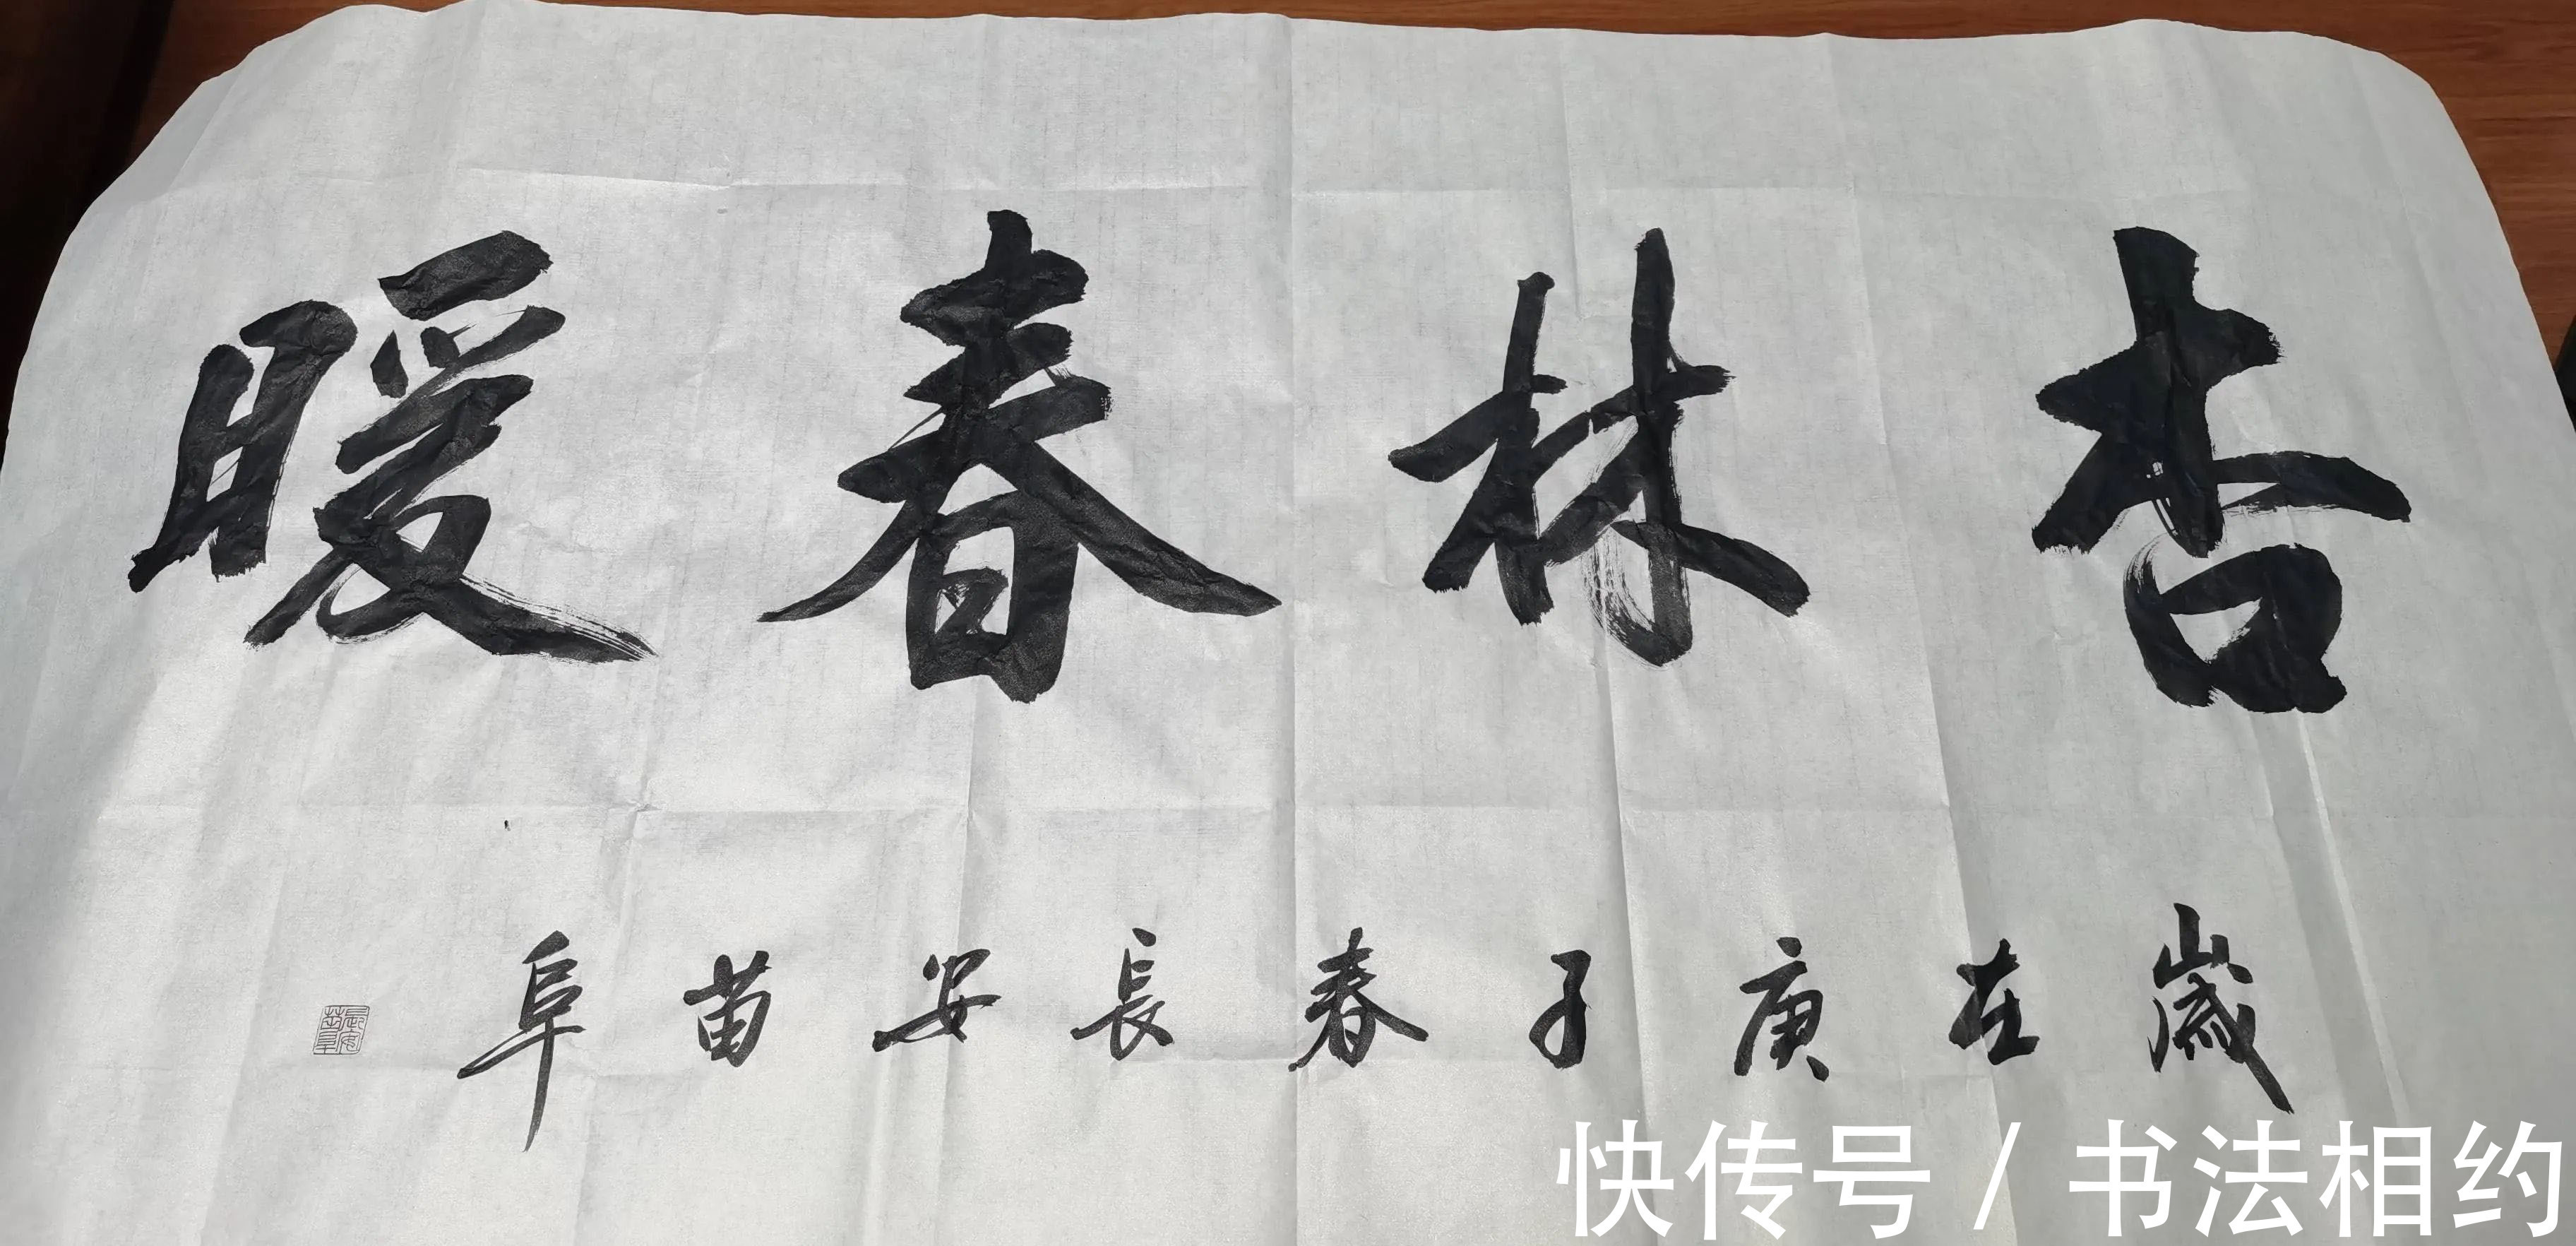 杏林春暖
歲在庚子春長安苗阜
長安苗阜
快传号 / 书法相约